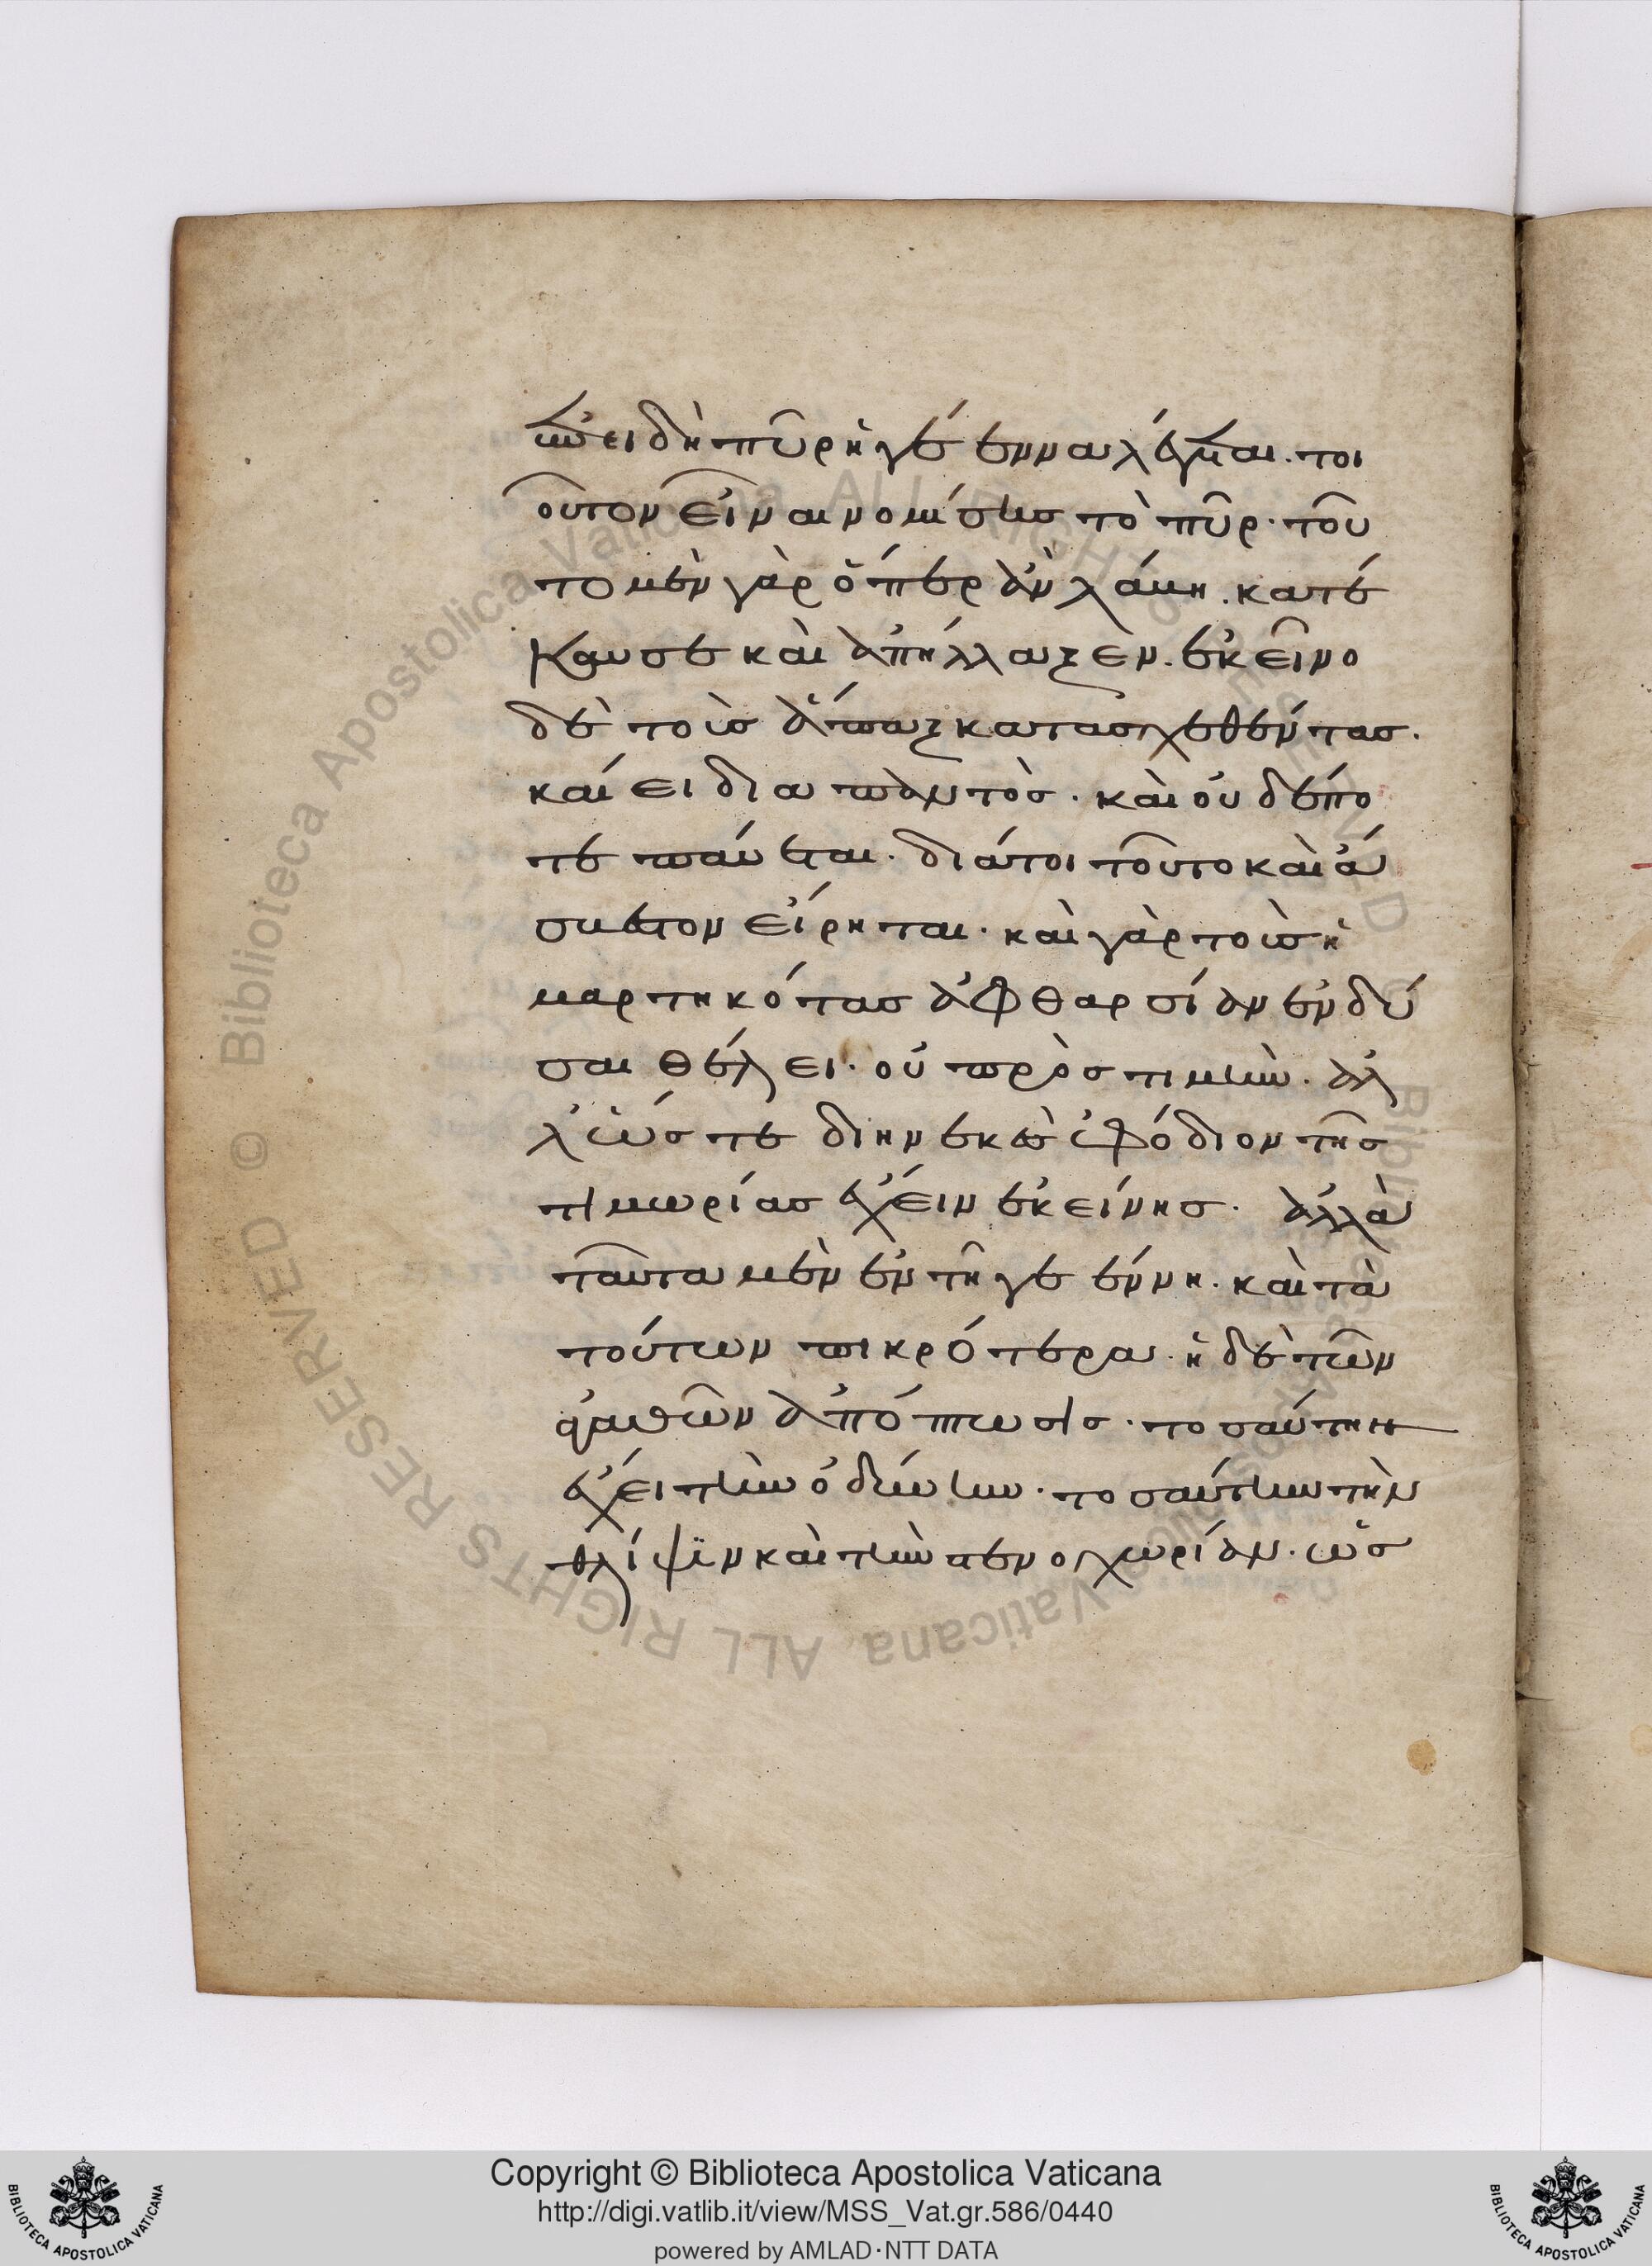 ἐπειδὴ πῦρ ἡ γέεννα λέγεται. τοι
οῦτον εἶναι νομίσῃς τὸ πῦρ. τοῦ
το μὲν γὰρ ὅπερ ἂν λάβη. κατέ
καυσε καὶ ἀπήλλαξεν. ἐκεῖνο
δὲ τοὺς ἅπαξ κατασχεθέντας.
καίει διαπαντὸς. καὶ οὐδέπο
τε παύεται. διάτοι τοῦτο καὶ ἄ
σβεστον εἴρηται. καὶ γὰρ τοὺς ἡ
μαρτηκότας ἀφθαρσίαν ἐνδύ
σαι θέλει. οὐ πρὸς τιμὴν. ἀλ
λ' ὥστε διηνεκὲς ἐφόδιον τῆς
τιμωρίας ἔχειν ἐκείνης. ἀλλὰ
ταῦτα μὲν ἐν τῆ γεέννη. καὶ τὰ
τούτων πικρότερα. ἡ δὲ τῶν
ἀγαθῶν ἀπόπτωσις. τοσαύτην
ἔχει τὴν ὀδύνην. τοσαύτην τὴν
θλίψιν καὶ τὴν στενοχωρίαν. ὡς
Copyright © Biblioteca Apostolica Vaticana
http://digi.vatlib.it/view/MSS_Vat.gr.586/0440
powered by AMLAD·NTT DATA
BIBLIOTECA APOSTOLICA VATICANA
BIBLIOTECA APOSTOLICA VATICANA
© Biblioteca Apostolica Vaticana ALL RIGHTS RESERVED © Biblioteca Apostolica Vaticana ALL RIGHTS RESERVED